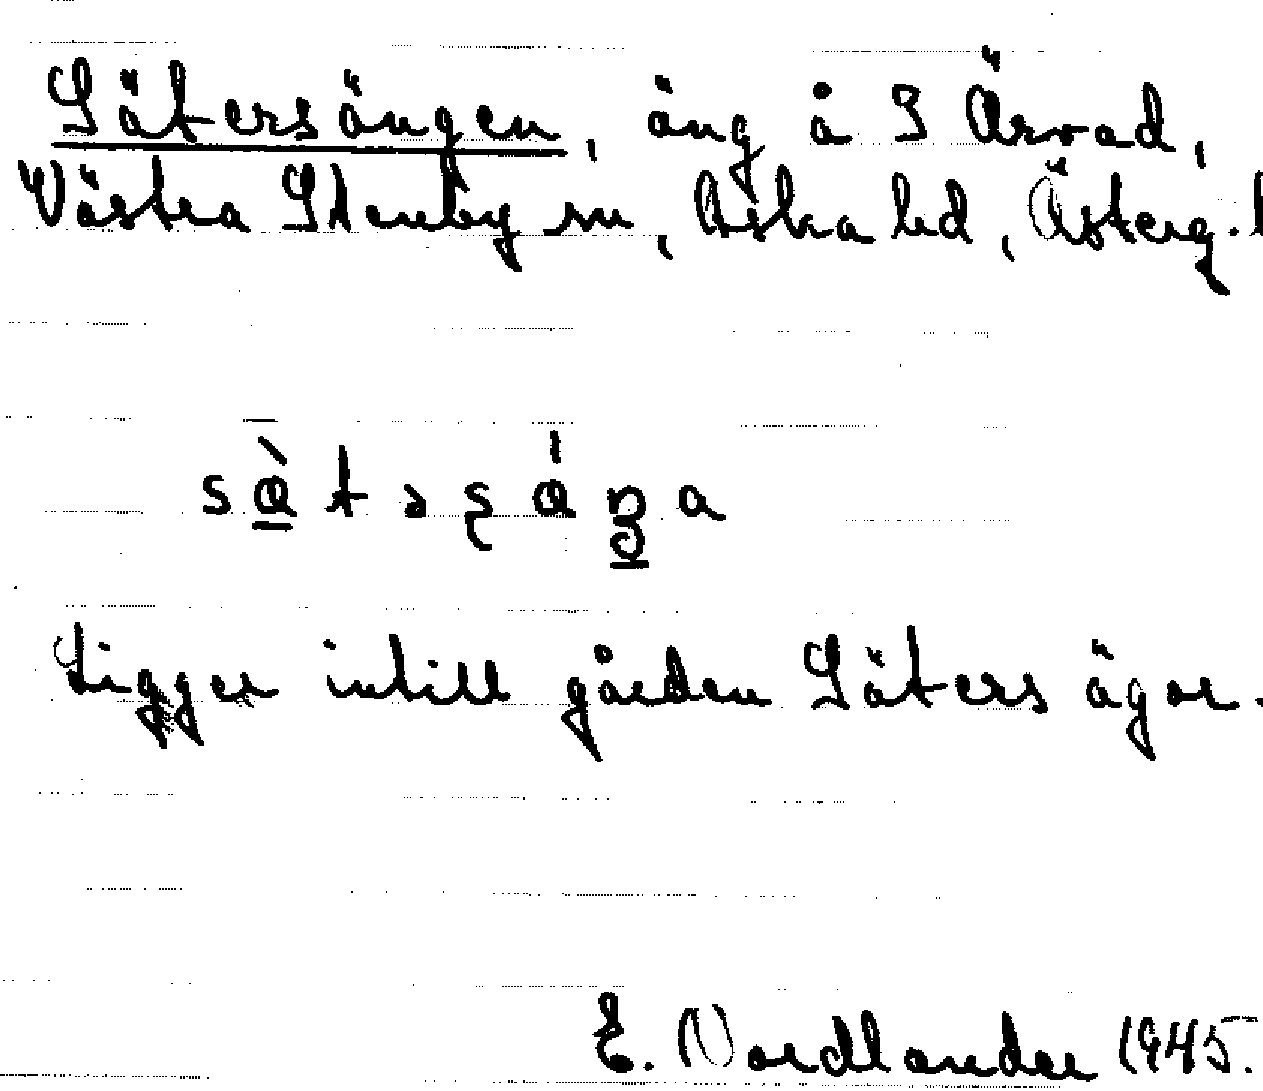 Sätersängen, äng å 3 Ärvad,
Västra Stenby sn, Aska hd, Österg. l
Ligger intill gården Säters ägor.
E. Nordlander 1945.